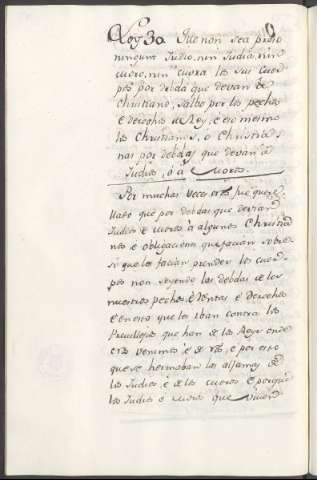 Ley 30 Que non sea preso
ningunt Judio, nin Judia, nin
moro, nin mora los sus cuer
pos por debda que devan de
Christiano, salbo por los pechos
e derechos de Rey, e eso mesmo
los Christianos, o Christia
nas por debdas que devan a
Judios, o a Moros.
Por muchas veces nos fue quere
llado que por debdas que devian
Judios e moros a algunos Christia
nos e obligaciones que facian sobre
si que los facian prender los cuer
pos non seyendo las debdas de los
nuestros pechos, e Rentas e derechos
e en esto que les iban contra los
Previllejos que han de los Reyes onde
nos venimos e de nos, e por esto
que se hermaban las aljamas de
los Judios, e de los moros e porque
los Judios e moros que